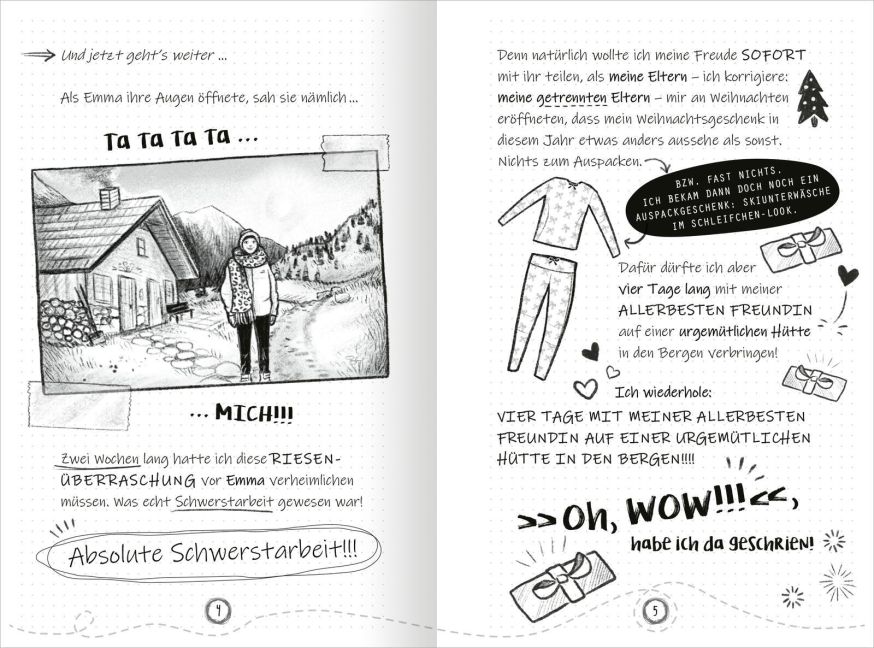 Und jetzt geht's weiter ...
Als Emma ihre Augen öffnete, sah sie nämlich ...
Ta Ta Ta Ta ...
... MICH!!!
Zwei Wochen lang hatte ich diese RIESEN-
ÜBERRASCHUNG vor Emma verheimlichen
müssen. Was echt Schwerstarbeit gewesen war!
Absolute Schwerstarbeit!!!
4
Denn natürlich wollte ich meine Freude SOFORT
mit ihr teilen, als meine Eltern – ich korrigiere:
meine getrennten Eltern – mir an Weihnachten
eröffneten, dass mein Weihnachtsgeschenk in
diesem Jahr etwas anders aussehe als sonst.
Nichts zum Auspacken.
BZW. FAST NICHTS.
ICH BEKAM DANN DOCH NOCH EIN
AUSPACKGESCHENK: SKIUNTERWÄSCHE
IM SCHLEIFCHEN-LOOK.
Dafür dürfte ich aber
vier Tage lang mit meiner
ALLERBESTEN FREUNDIN
auf einer urgemütlichen Hütte
in den Bergen verbringen!
Ich wiederhole:
VIER TAGE MIT MEINER ALLERBESTEN
FREUNDIN AUF EINER URGEMÜTLICHEN
HÜTTE IN DEN BERGEN!!!!
>>Oh, WOW!!!<<,
habe ich da geschrien!
5